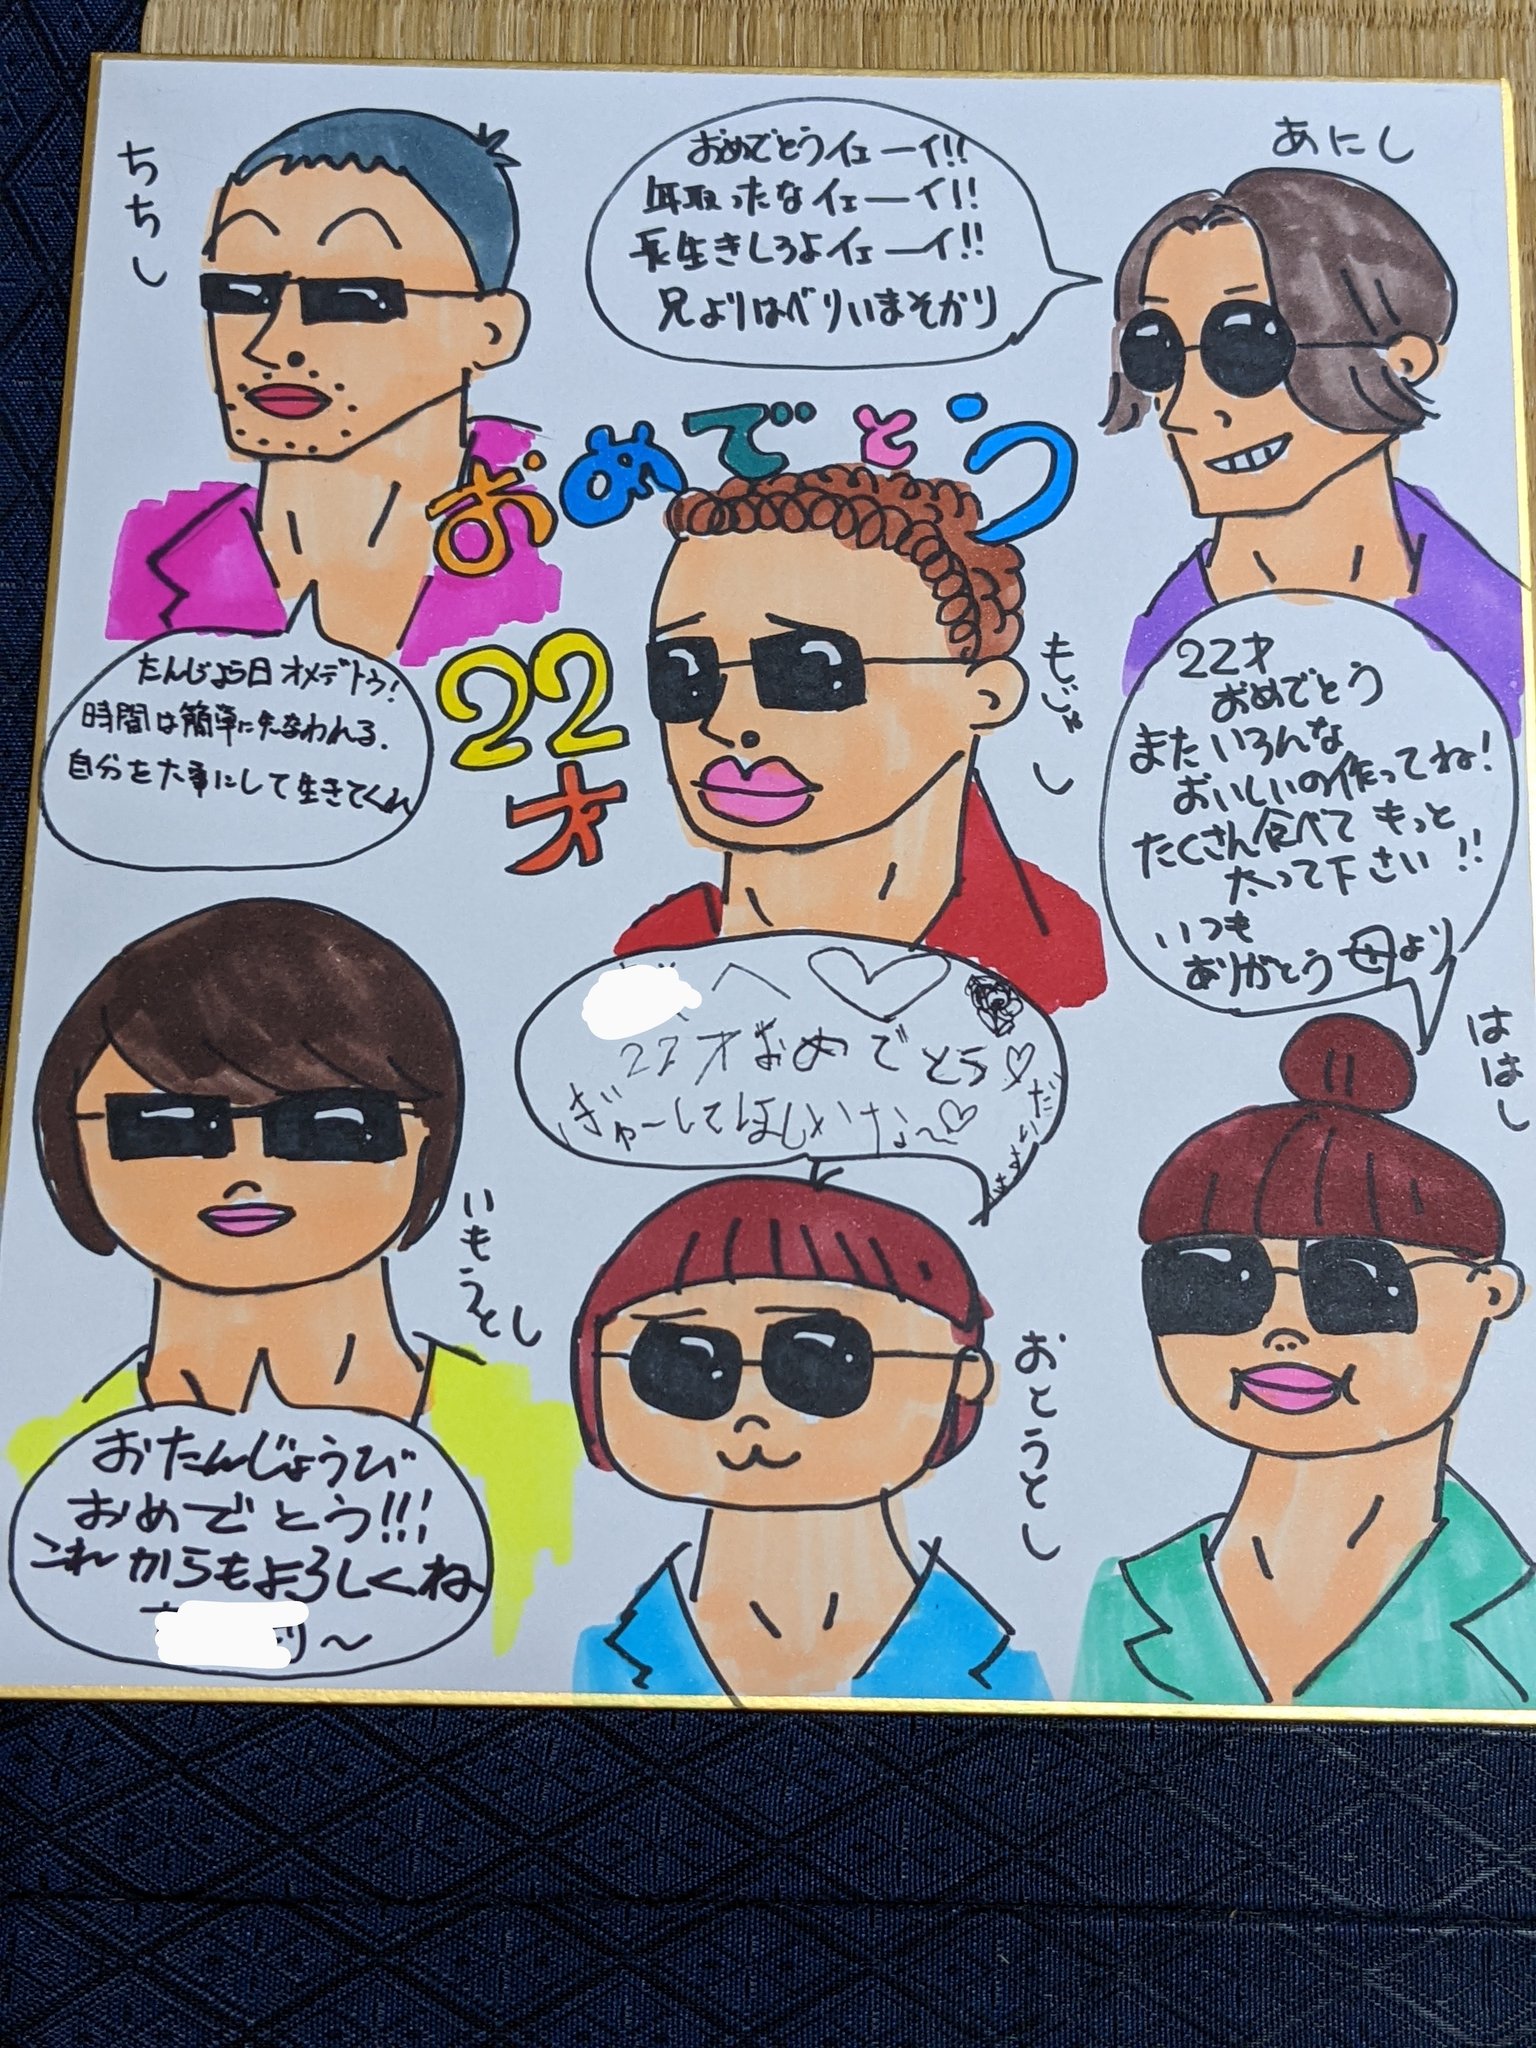 ちちし
おめでとうイェーイ!!
年取ったなイェーイ!!
長生きしろよイェーイ!!
兄よりはべりいまそかり
あにし
おめでとう
22
才
もじゃし
たんじょう日オメデトウ!
時間は簡単に失なわれる.
自分を大事にして生きてくれ
22才
おめでとう
またいろんな
おいしいの作ってね!
たくさん食べてもっと
太って下さい!!
いつも
ありがとう 母より
ははし
へ♡
22才おめでとう♡
ぎゅーしてほしいな〜♡
いもうとし
おとうとし
おたんじょうび
おめでとう!!!
これからもよろしくね
り〜